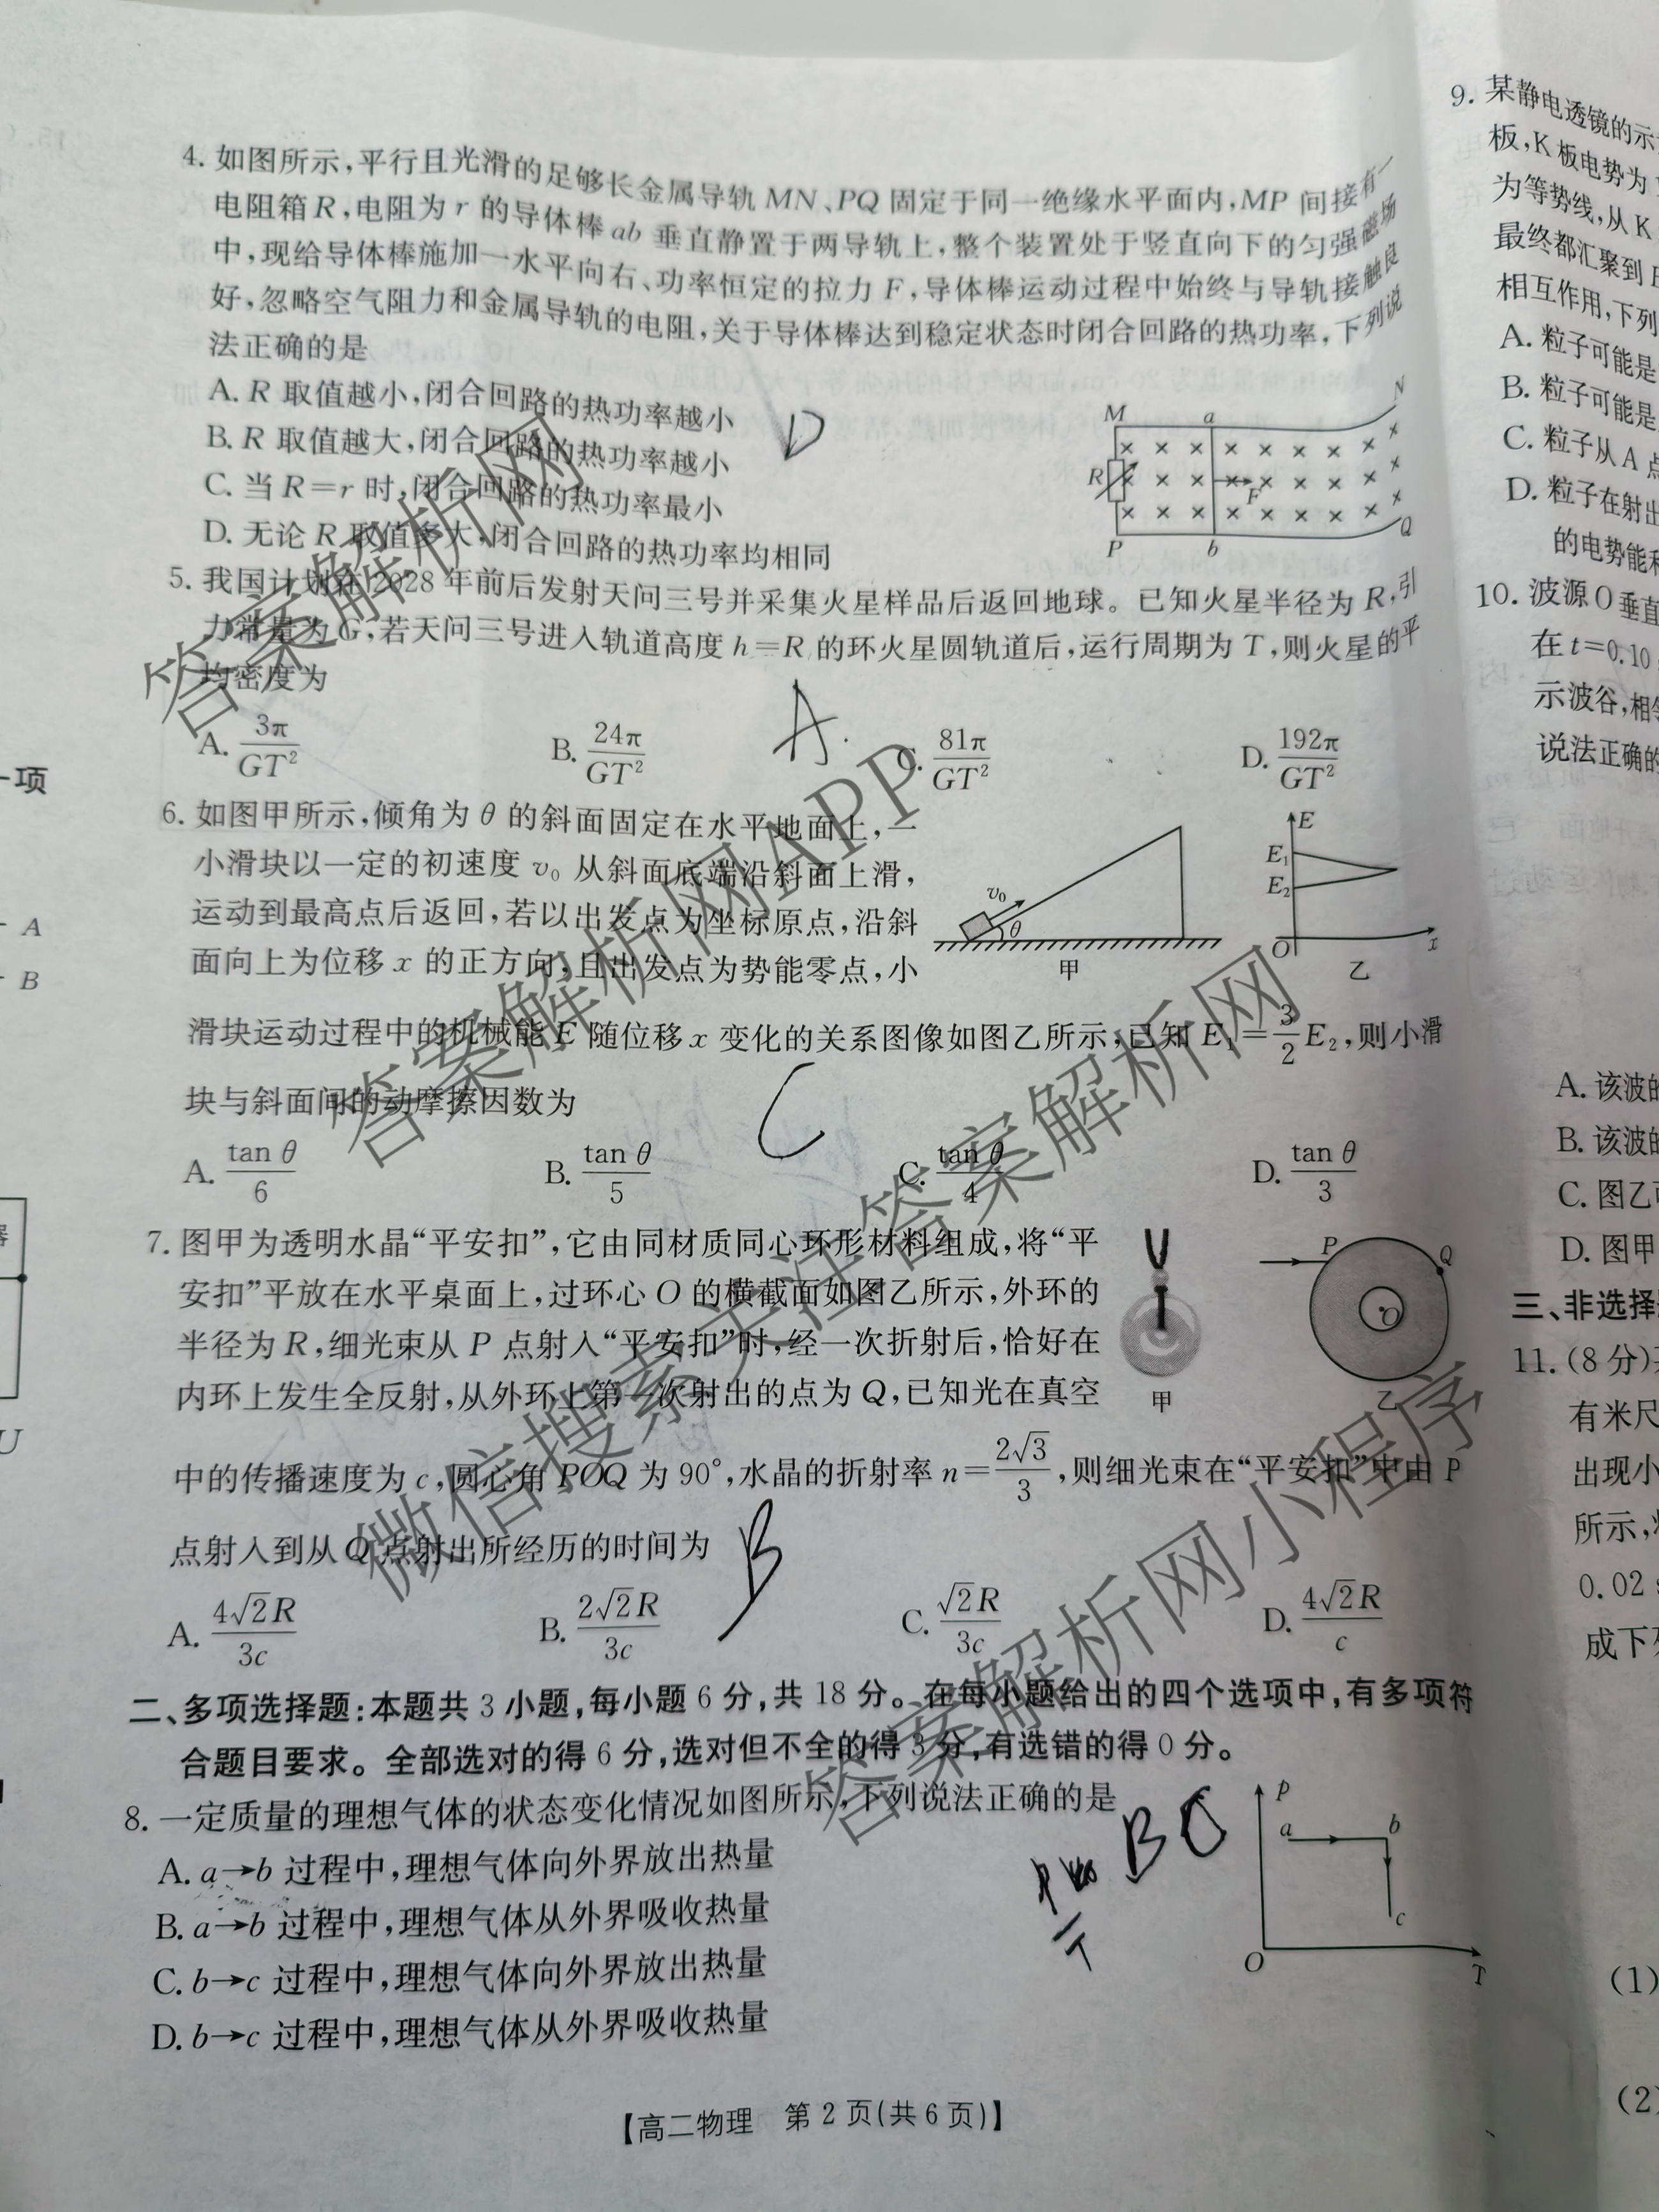 4. 如图所示,平行且光滑的足够长金属导轨 MN、PQ 固定于同一绝缘水平面内,MP 间接有一
电阻箱 R,电阻为 r 的导体棒 ab 垂直静置于两导轨上,整个装置处于竖直向下的匀强磁场
中,现给导体棒施加一水平向右、功率恒定的拉力 F,导体棒运动过程中始终与导轨接触良
好,忽略空气阻力和金属导轨的电阻,关于导体棒达到稳定状态时闭合回路的热功率,下列说
法正确的是
A. R 取值越小,闭合回路的热功率越小
B. R 取值越大,闭合回路的热功率越小
C. 当 R=r 时,闭合回路的热功率最小
D. 无论 R 取值多大,闭合回路的热功率均相同
D
M a N
R F
P b Q
5. 我国计划在 2028 年前后发射天问三号并采集火星样品后返回地球。已知火星半径为 R,引
力常量为 G,若天问三号进入轨道高度 h=R 的环火星圆轨道后,运行周期为 T,则火星的平
均密度为
A. 3π/GT² B. 24π/GT² C. 81π/GT² D. 192π/GT²
A.
6. 如图甲所示,倾角为 θ 的斜面固定在水平地面上,一
小滑块以一定的初速度 v₀ 从斜面底端沿斜面上滑,
运动到最高点后返回,若以出发点为坐标原点,沿斜
面向上为位移 x 的正方向,且出发点为势能零点,小
滑块运动过程中的机械能 E 随位移 x 变化的关系图像如图乙所示,已知 E₁=3/2 E₂,则小滑
块与斜面间的动摩擦因数为
v₀ θ 甲
E E₁ E₂ O x 乙
C
A. tan θ/6 B. tan θ/5 C. tan θ/4 D. tan θ/3
7. 图甲为透明水晶“平安扣”,它由同材质同心环形材料组成,将“平
安扣”平放在水平桌面上,过环心 O 的横截面如图乙所示,外环的
半径为 R,细光束从 P 点射入“平安扣”时,经一次折射后,恰好在
内环上发生全反射,从外环上第一次射出的点为 Q,已知光在真空
中的传播速度为 c,圆心角 POQ 为 90°,水晶的折射率 n=2√3/3,则细光束在“平安扣”中由 P
点射入到从 Q 点射出所经历的时间为
甲
P Q O 乙
B
A. 4√2R/3c B. 2√2R/3c C. √2R/3c D. 4√2R/c
二、多项选择题:本题共 3 小题,每小题 6 分,共 18 分。在每小题给出的四个选项中,有多项符
合题目要求。全部选对的得 6 分,选对但不全的得 3 分,有选错的得 0 分。
8. 一定质量的理想气体的状态变化情况如图所示,下列说法正确的是
A. a→b 过程中,理想气体向外界放出热量
B. a→b 过程中,理想气体从外界吸收热量
C. b→c 过程中,理想气体向外界放出热量
D. b→c 过程中,理想气体从外界吸收热量
BC
p a b c O T
【高二物理 第 2 页(共 6 页)】
答案解析网
答案解析网APP
微信搜索关注答案解析网
答案解析网小程序
一项
A
B
器
U
9. 某静电透镜的示
板,K 板电势为
为等势线,从 K
最终都汇聚到
相互作用,下列
A. 粒子可能是
B. 粒子可能是
C. 粒子从 A 点
D. 粒子在射出
的电势能和
10. 波源 O 垂直
在 t=0.10
示波谷,相邻
说法正确的
A. 该波的
B. 该波的
C. 图乙可
D. 图甲
三、非选择
11. (8 分)
有米尺
出现小
所示,
0.02
成下列
(1)
(2)